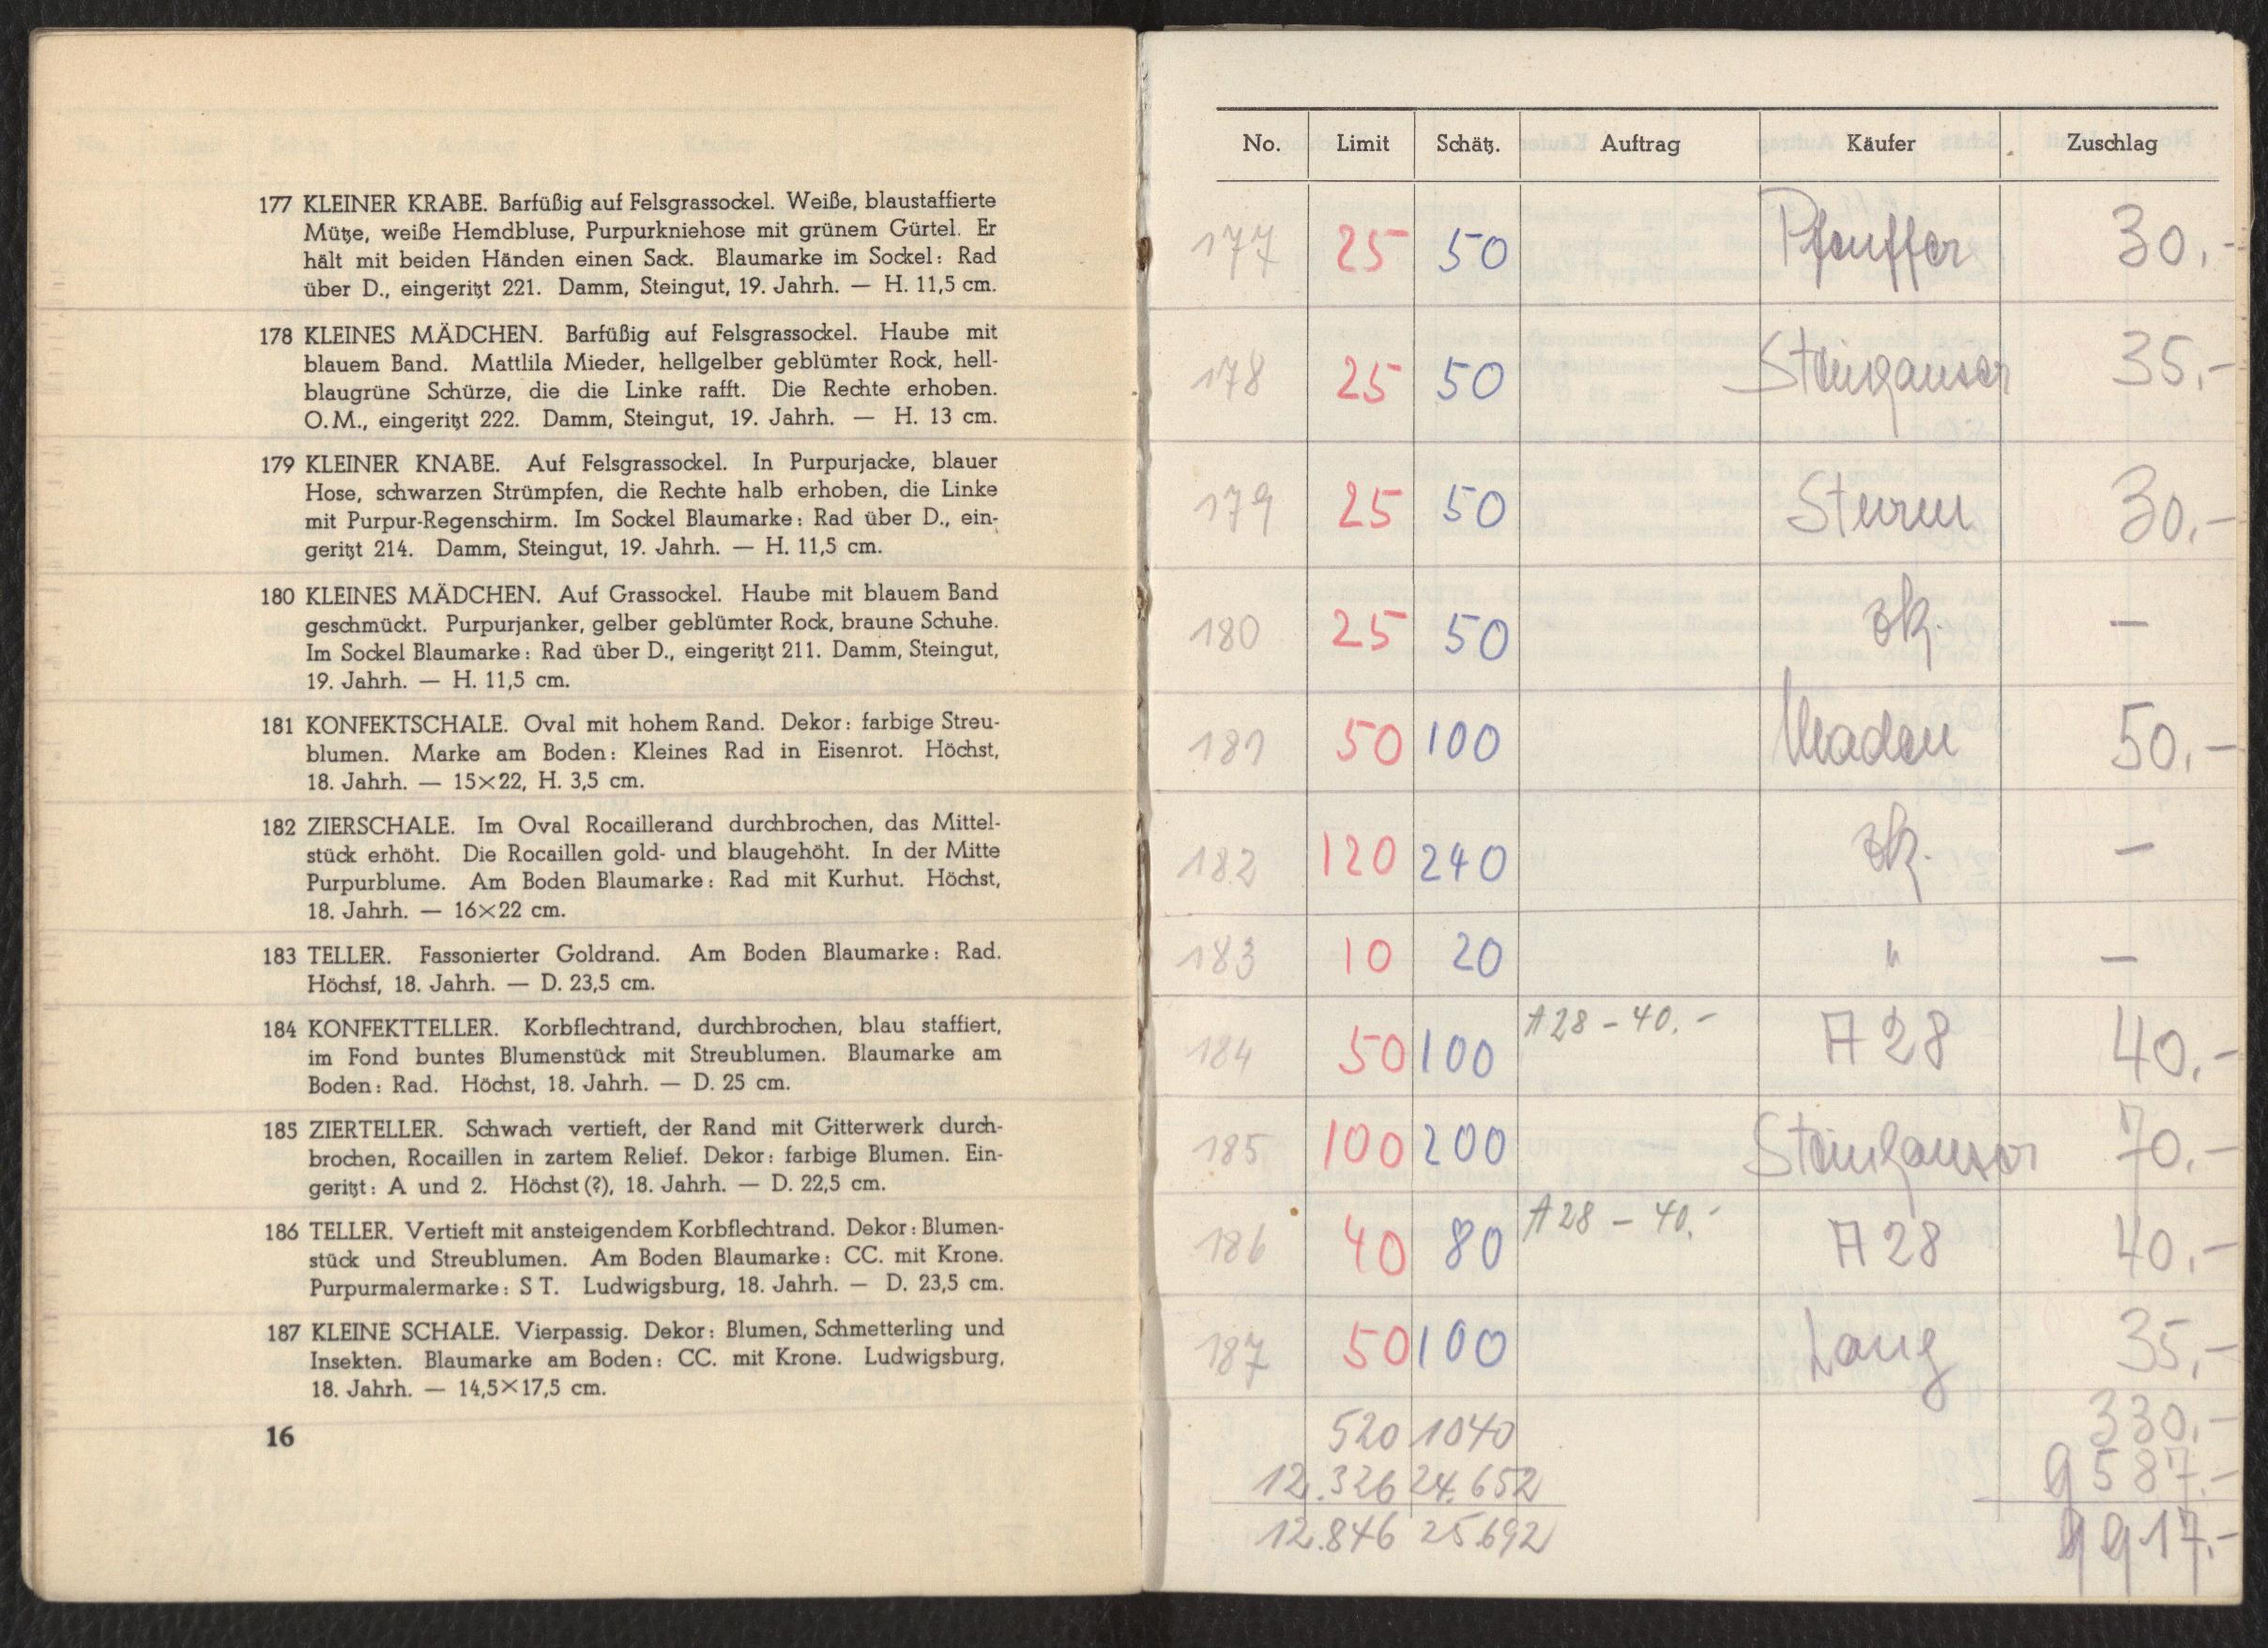 177 KLEINER KRABE. Barfüßig auf Felsgrassockel. Weiße, blaustaffierte
Mütze, weiße Hemdbluse, Purpurkniehose mit grünem Gürtel. Er
hält mit beiden Händen einen Sack. Blaumarke im Sockel: Rad
über D., eingeritzt 221. Damm, Steingut, 19. Jahrh. — H. 11,5 cm.
178 KLEINES MÄDCHEN. Barfüßig auf Felsgrassockel. Haube mit
blauem Band. Mattlila Mieder, hellgelber geblümter Rock, hell-
blaugrüne Schürze, die die Linke rafft. Die Rechte erhoben.
O.M., eingeritzt 222. Damm, Steingut, 19. Jahrh. — H. 13 cm.
179 KLEINER KNABE. Auf Felsgrassockel. In Purpurjacke, blauer
Hose, schwarzen Strümpfen, die Rechte halb erhoben, die Linke
mit Purpur-Regenschirm. Im Sockel Blaumarke: Rad über D., ein-
geritzt 214. Damm, Steingut, 19. Jahrh. — H. 11,5 cm.
180 KLEINES MÄDCHEN. Auf Grassockel. Haube mit blauem Band
geschmückt. Purpurjanker, gelber geblümter Rock, braune Schuhe.
Im Sockel Blaumarke: Rad über D., eingeritzt 211. Damm, Steingut,
19. Jahrh. — H. 11,5 cm.
181 KONFEKTSCHALE. Oval mit hohem Rand. Dekor: farbige Streu-
blumen. Marke am Boden: Kleines Rad in Eisenrot. Höchst,
18. Jahrh. — 15×22, H. 3,5 cm.
182 ZIERSCHALE. Im Oval Rocaillerand durchbrochen, das Mittel-
stück erhöht. Die Rocaillen gold- und blaugehöht. In der Mitte
Purpurblume. Am Boden Blaumarke: Rad mit Kurhut. Höchst,
18. Jahrh. — 16×22 cm.
183 TELLER. Fassonierter Goldrand. Am Boden Blaumarke: Rad.
Höchsf, 18. Jahrh. — D. 23,5 cm.
184 KONFEKTTELLER. Korbflechtrand, durchbrochen, blau staffiert,
im Fond buntes Blumenstück mit Streublumen. Blaumarke am
Boden: Rad. Höchst, 18. Jahrh. — D. 25 cm.
185 ZIERTELLER. Schwach vertieft, der Rand mit Gitterwerk durch-
brochen, Rocaillen in zartem Relief. Dekor: farbige Blumen. Ein-
geritzt: A und 2. Höchst (?), 18. Jahrh. — D. 22,5 cm.
186 TELLER. Vertieft mit ansteigendem Korbflechtrand. Dekor: Blumen-
stück und Streublumen. Am Boden Blaumarke: CC. mit Krone.
Purpurmalermarke: S T. Ludwigsburg, 18. Jahrh. — D. 23,5 cm.
187 KLEINE SCHALE. Vierpassig. Dekor: Blumen, Schmetterling und
Insekten. Blaumarke am Boden: CC. mit Krone. Ludwigsburg,
18. Jahrh. — 14,5×17,5 cm.
16
No. Limit Schätz. Auftrag Käufer Zuschlag
177 25 50 Pfeuffer 30,-
178 25 50 Steinhauser 35,-
179 25 50 Sturm 30,-
180 25 50 zk. —
181 50 100 50,-
182 120 240 zk. —
183 10 20 " —
184 50 100 A28 – 40.- A 28 40,-
185 100 200 Steinhauser 70,-
186 40 80 A28 – 40.- A 28 40,-
187 50 100 Lang 35,-
520 1040 330,-
12.326 24.652 9587.-
12.846 25692 9917,-